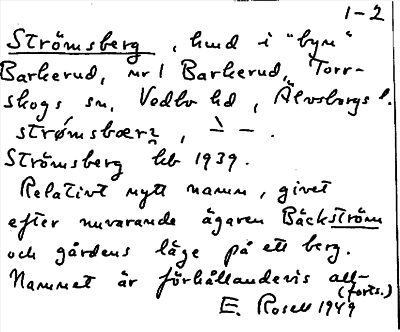 1-2
Strömsberg, hmd i "byn"
Barkerud, nr 1 Barkerud, Torr-
skogs sn, Vedbo hd, Älvsborgs l.
strømsbærꝫ, ` – .
Strömsberg hb 1939.
Relativt nytt namn, givet
efter nuvarande ägaren Bäckström
och gårdens läge på ett berg.
Namnet är förhållandevis all-
(forts.)
E. Rosell 1949